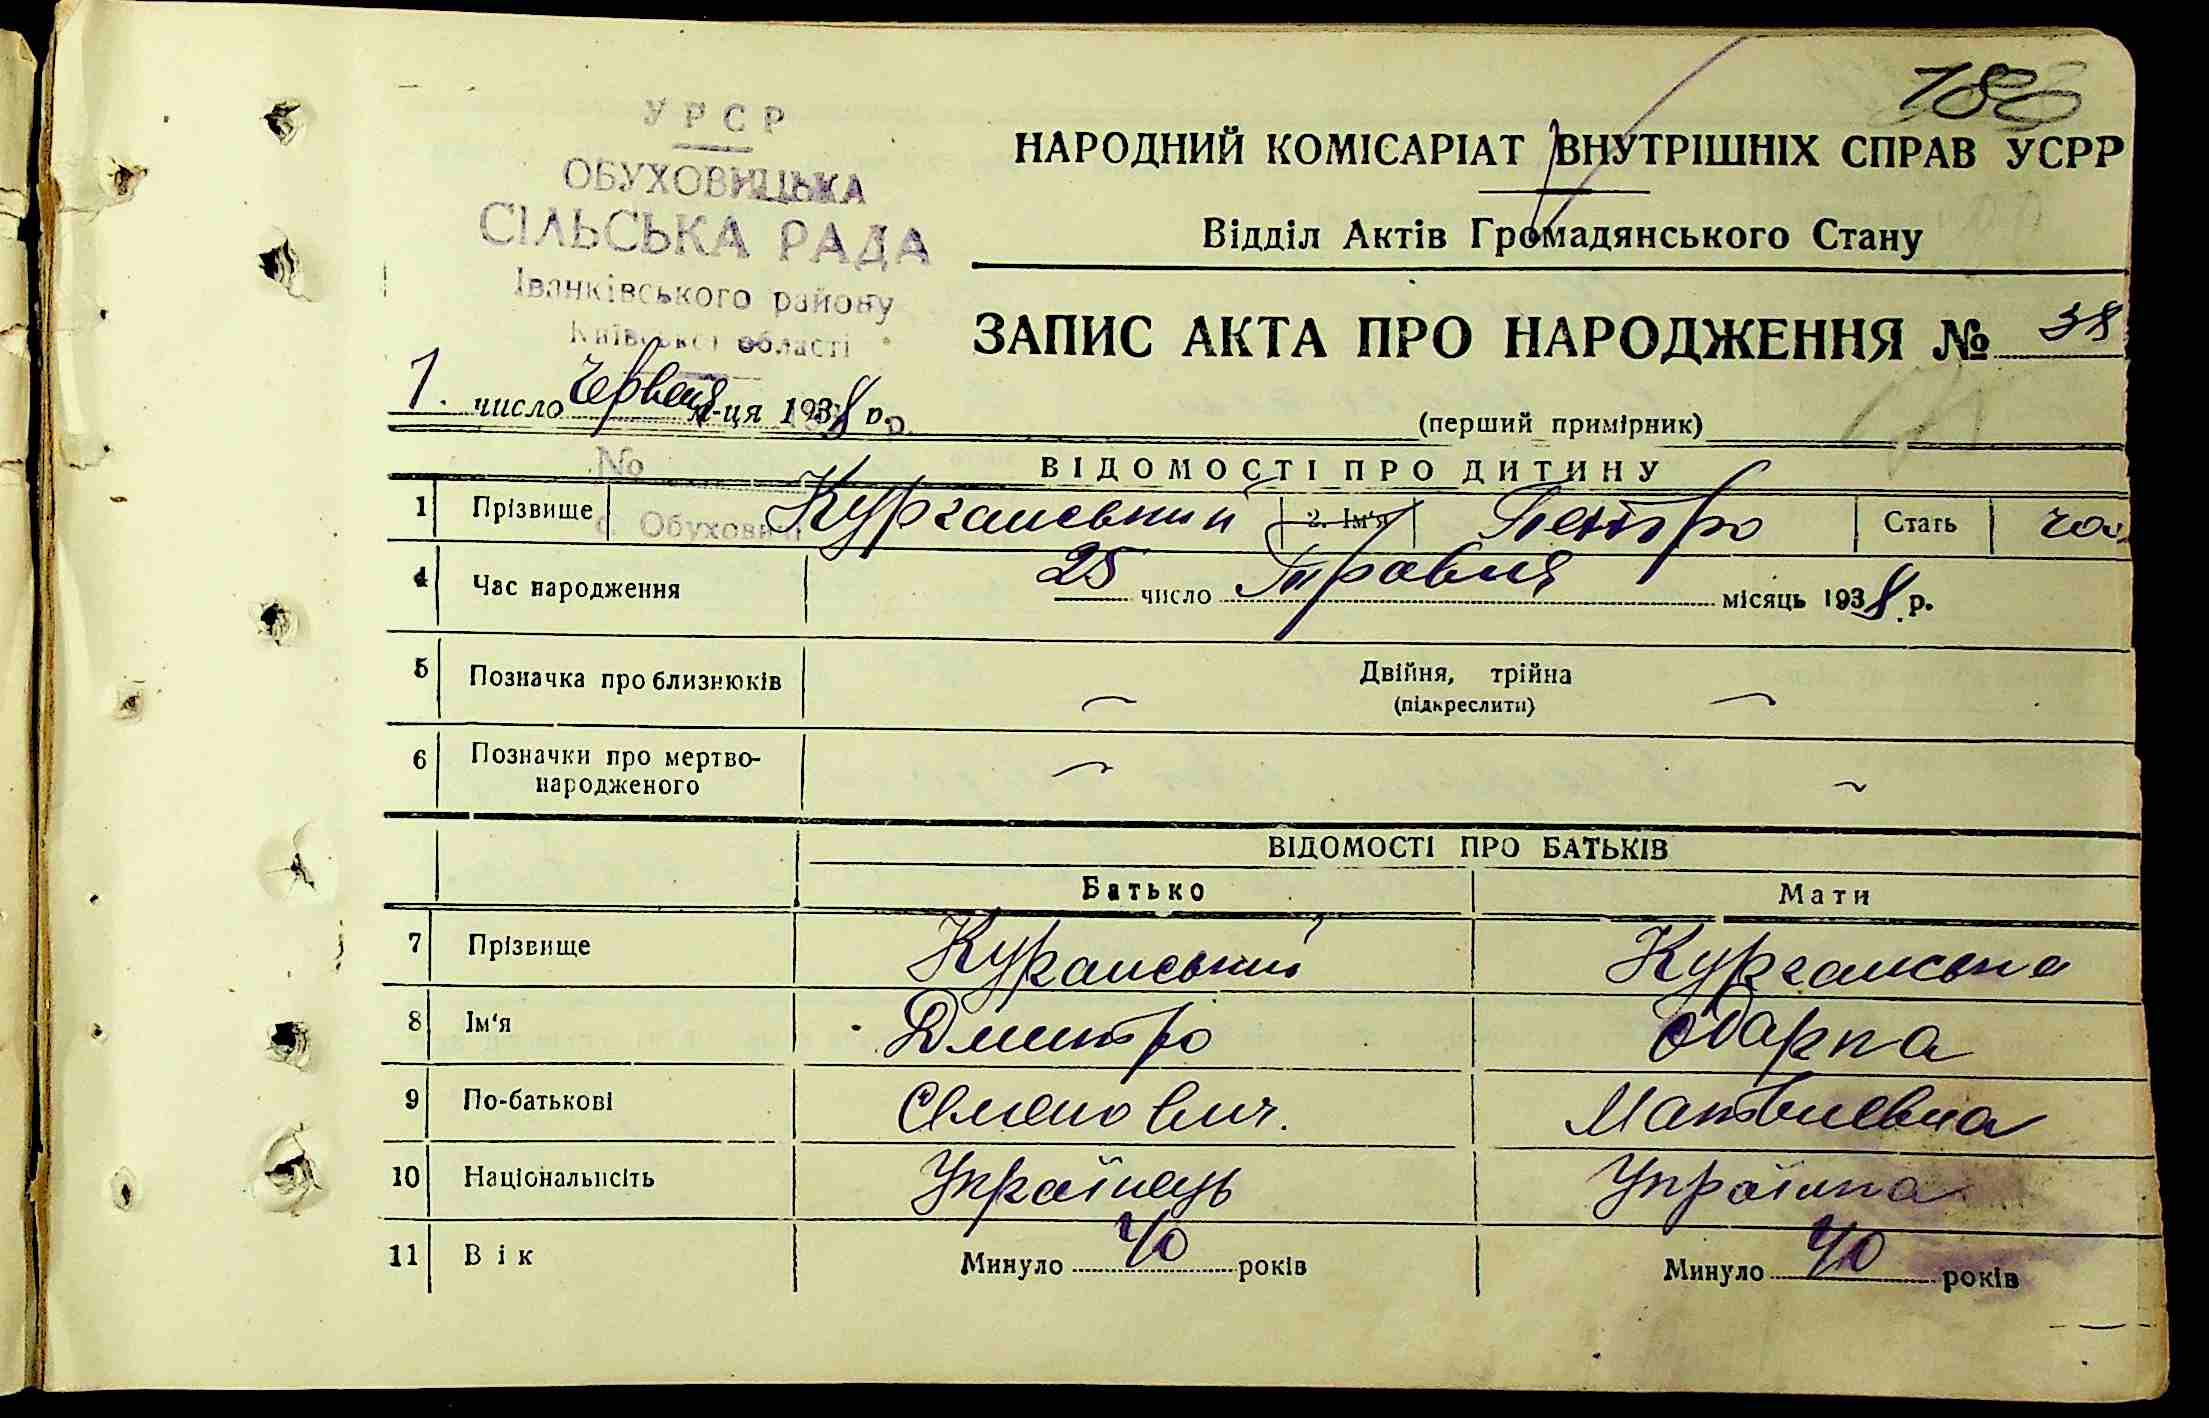 188
УРСР
ОБУХОВИЦЬКА
СІЛЬСЬКА РАДА
Іванківського району
Київської області
НАРОДНИЙ КОМІСАРІАТ ВНУТРІШНІХ СПРАВ УСРР
Відділ Актів Громадянського Стану
ЗАПИС АКТА ПРО НАРОДЖЕННЯ № 38
1. число Червня м-ця 1938 р.
(перший примірник)
№
с. Обуховичі
ВІДОМОСТІ ПРО ДИТИНУ
1 Прізвище Курганський 2. Ім'я Петро Стать чол
4 Час народження 25 число Травня місяць 1938 р.
5 Позначка про близнюків Двійня, трійна
(підкреслити)
6 Позначки про мертво-
народженого
ВІДОМОСТІ ПРО БАТЬКІВ
Батько Мати
7 Прізвище Курганський Курганська
8 Ім'я Дмитро Одарка
9 По-батькові Семенович. Матвиевна
10 Національність Українець Українка
11 Вік Минуло 40 років Минуло 40 років